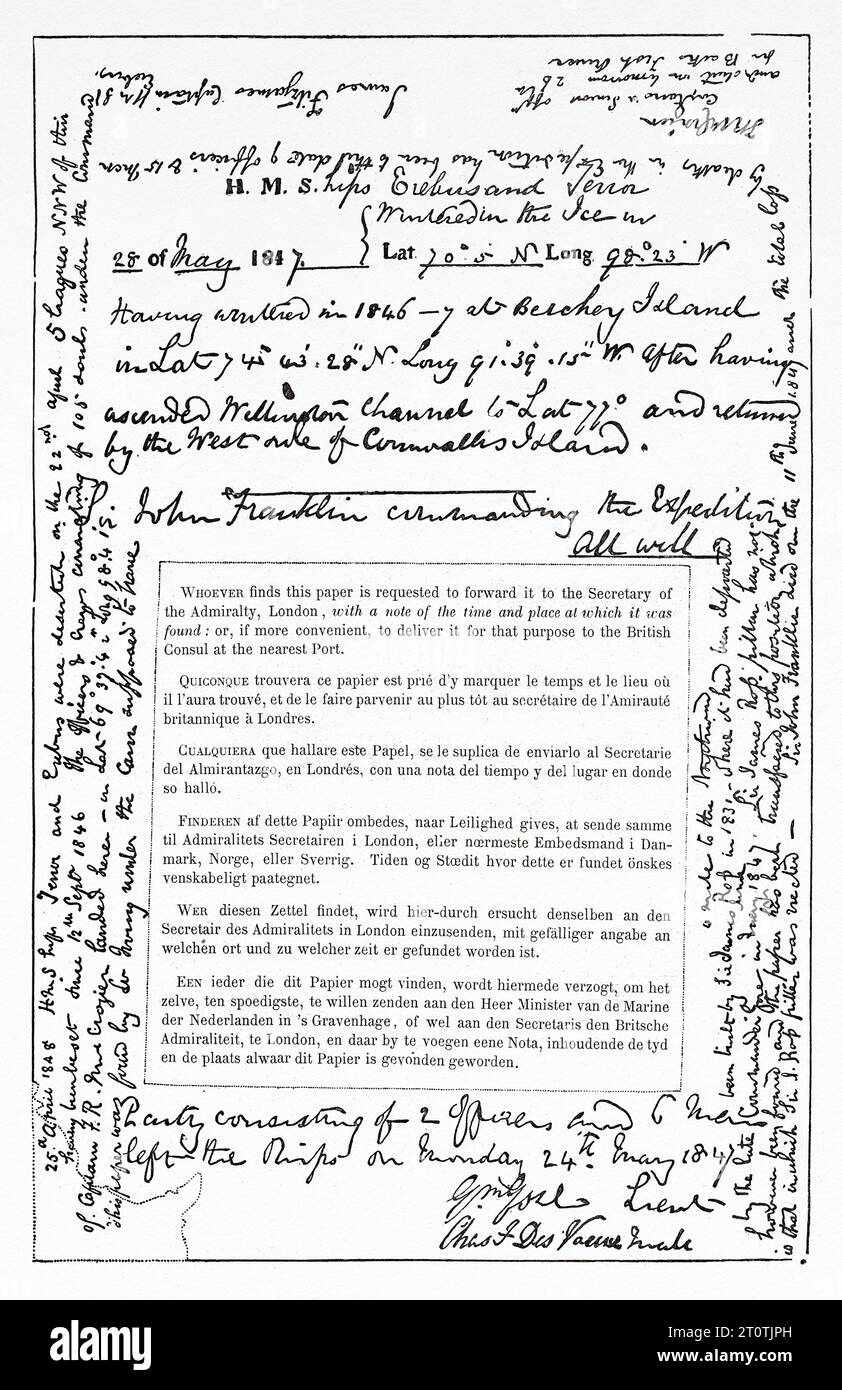 H. M. S. hips Erebus and Terror
Wintered in the Ice in
28 of May 1847. Lat. 70° 5 N Long. 98° 23' W
Having wintered in 1846-7 at Beechey Island
in Lat 74° 43'. 28" N. Long 91°. 39'. 15" W. after having
ascended Wellington Channel to Lat 77° and returned
by the West side of Cornwallis Island.
John Franklin commanding the Expedition
All well
WHOEVER finds this paper is requested to forward it to the Secretary of
the Admiralty, London, with a note of the time and place at which it was
found: or, if more convenient, to deliver it for that purpose to the British
Consul at the nearest Port.
QUICONQUE trouvera ce papier est prié d'y marquer le temps et le lieu où
il l'aura trouvé, et de le faire parvenir au plus tôt au secrétaire de l'Amirauté
britannique à Londres.
CUALQUIERA que hallare este Papel, se le suplica de enviarlo al Secretarie
del Almirantazgo, en Londrés, con una nota del tiempo y del lugar en donde
so halló.
FINDEREN af dette Papiir ombedes, naar Leilighed gives, at sende samme
til Admiralitets Secretairen i London, eller nœrmeste Embedsmand i Dan-
mark, Norge, eller Sverrig. Tiden og Stœdit hvor dette er fundet önskes
venskabeligt paategnet.
WER diesen Zettel findet, wird hier-durch ersucht denselben an den
Secretair des Admiralitets in London einzusenden, mit gefälliger angabe an
welchen ort und zu welcher zeit er gefundet worden ist.
EEN ieder die dit Papier mogt vinden, wordt hiermede verzogt, om het
zelve, ten spoedigste, te willen zenden aan den Heer Minister van de Marine
der Nederlanden in 's Gravenhage, of wel aan den Secretaris den Britsche
Admiraliteit, te London, en daar by te voegen eene Nota, inhoudende de tyd
en de plaats alwaar dit Papier is gevonden geworden.
Party consisting of 2 Officers and 6 Men
left the Ships on Monday 24th. May 1847
Gm Gore Lieut
Chas F Des Voeux Mate
25th April 1848 HMShips Terror and Erebus were deserted on the 22nd April 5 leagues NNW of this
having been beset since 12th Septr 1846 The Officers & Crews consisting of 105 souls under the Command
of Captain F.R.M. Crozier landed here - in Lat 69° 37' 42" Long 98° 41'
This paper was found by Lt Irving under the Cairn supposed to have
been built by Sir James Ross in 1831 where it had been deposited
4 miles to the Northward
by the late Commander Gore in June 1847. Sir James Ross' pillar has not
however been found and the paper has been transferred to this position which
is that in which Sir J. Ross pillar was erected - Sir John Franklin died on the 11th June 1847 and the total loss
by deaths in the Expedition has been to this date 9 officers & 15 Men
James Fitzjames Captain HMS Erebus
Captain & Senior Offr
and start on tomorrow 26
for Backs Fish River
alamy
Image ID: 2T0TJPH
www.alamy.com